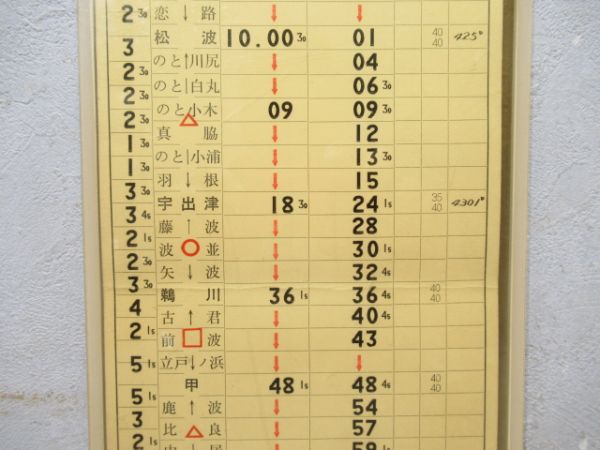 2 30 恋 ↓ 路 ↓ ↓
3 松 波 10.00 30 ↓ 01 40 40 425°
2 30 のと↑川尻 ↓ 04
2 30 のと|白丸 ↓ 06 30
2 30 のと小木 09 09 30
2 30 真 △ 脇 ↓ 12
1 30 のと|小浦 ↓ 13 30
1 30 羽 ↓ 根 ↓ 15
3 30 宇 出 津 18 30 24 1s 35 40 4301°
3 4s 藤 ↑ 波 ↓ 28
2 1s 波 ○ 並 ↓ 30 1s
2 30 矢 ↓ 波 ↓ 32 4s
3 30 鵜 川 36 1s 36 4s 40 40
4 古 ↑ 君 ↓ 40 4s
2 1s 前 □ 波 ↓ 43
5 1s 立戸↓ノ浜 ↓ ↓
甲 48 1s 48 4s 40 40
5 1s 鹿 ↑ 波 ↓ 54
3 比 △ 良 ↓ 57
2 1s ↓ 居 ↓ 59 1s